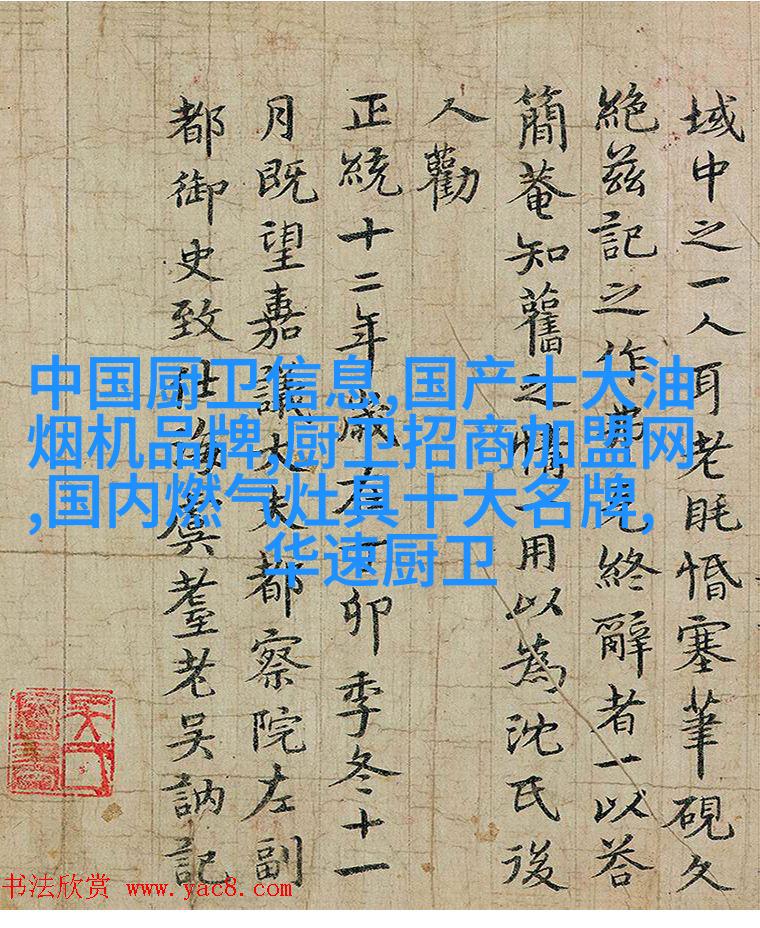 域中之一人耳老眊惛塞筆硯久
絶茲記之作弗克終辭者一以荅
簡菴知舊之情一用以為沈氏後
人勸
正統十二年歲在丁卯季冬十一
月既望嘉議大夫都察院左副
都御史致仕海虞耋老吳訥記
中国厨卫信息,国产十大油
烟机品牌,厨卫招商加盟网
,国内燃气灶具十大名牌,
华速厨卫
书法欣赏 www.yac8.com